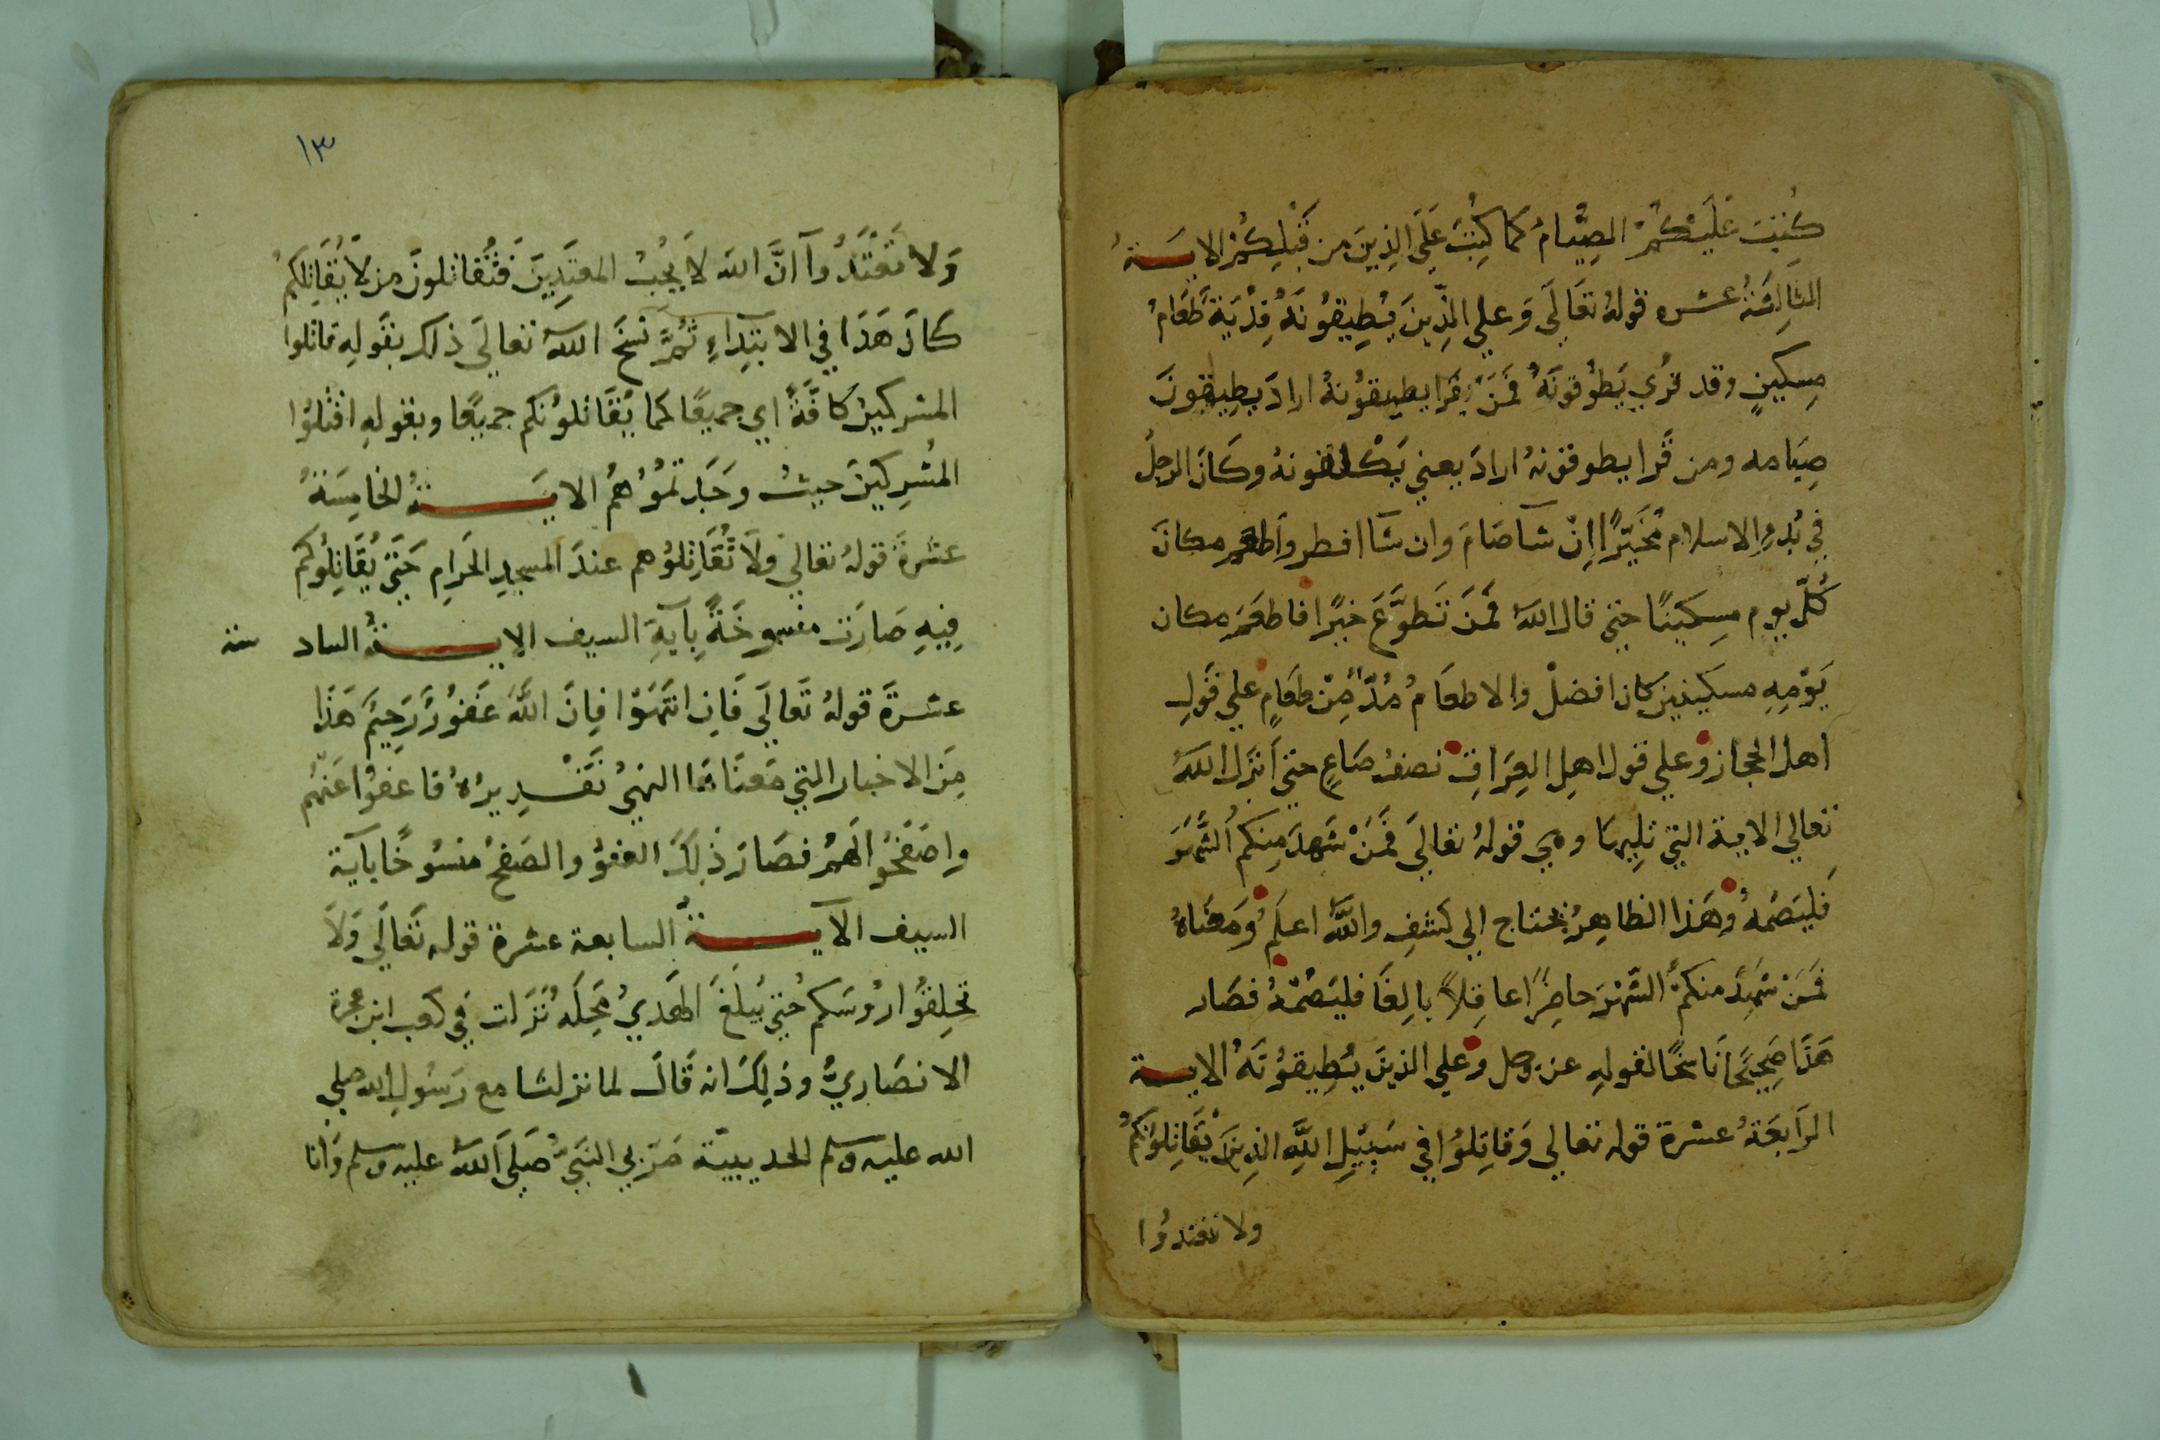 كُتِبَ عَلَيْكُمْ الصِّيَامُ كَمَا كُتِبَ عَلَى الذِينَ من قَبْلِكُمْ الايـة
الثالِثَةُ عشره قولهُ تعَالَى وَعلي الذِّينَ يُطِيقُونَهُ فِدْيَةٌ طَعَامُ
مِسكينٍ وقد قُري يَطوُقونَهُ فَمَنْ يَقرا يطيقوُنهُ ارادَ يطيقونَ
صِيَامه ومن قَرا يطوقونهُ ارادَ يعني يَكلفونهُ وكَانَ الرجلُ
في بُدوِ الاسلام مُخَيّرًا اِنْ شآ صَامَ وان شَآ افطر واطعم مكانَ
كُلّ يوم مِسكينًا حتي قال اللهُ فَمَنَ تَطَوَّعَ خيرًا فاطعَمَ مكان
يَوْمِهِ مسكينين كان افضلْ والاطعَامُ مُدٌّ مِنْ طَعَامٍ علي قَولِ
اهل الحجاز وعلي قول اهِل العِرَاقِ نصفُ صَاعٍ حتي اَنزَل اللهُ
تعالي الاية التي تلِيها وهي قولهُ تعَالَى فَمَنْ شَهِدَ مِنكُم الشَّهرَ
فَليَصُمهُ وهَذا الظاهِرُ يحتاج الي كَشفِ واللهُ اعلَمُ وَمعَناهُ
فَمَنْ شَهِدَ منكمُ الشّهْرَ حاضِرًا عاقِلاً بالِغَا فليَصُمْهُ فصَار
هَذَا صَحِيحَا نَاسخًا لقولهِ عز وجل وعلي الذينَ يُطِيقُوُنَهُ الايـة
الرَابعَةُ عشرة قوله تعالي وَقاتِلوُا في سَبيْلِ اللَّهِ الذِينَ يُقَاتِلوُنَكُمْ
ولا تعتدوُا
١٣
وَلا تَعْتَدُوآ انَّ الله لَا يُحِبُ المعتَدِينَ فَتُقاتلونَ من لاَ يُقَاتِلكُمُ
كَانَ هَذَا في الابتِدَاءِ ثُمَّ نسَخَ اللهُ تعالَى ذلك بقَولِهِ قاتلوا
المشركينَ كَافَّةً اي جميعًا كمَا يُقَاتلوُنكم جميعًا وبقولهِ اقتُلوُا
المُشرِكينَ حيثُ وَجَدتمُوُهُمُ الايـةُ الخامِسَةُ
عشْرةَ قولهُ تعَالي ولَا تُقَاتِلوُهم عندَ المسجدِ الحَرامِ حَتَّيَ يُقَاتِلوُكم
فِيهِ صَارَت منسوخَةً بِآيةِ السيف الايـةُ الساد سة
عشرةَ قولهُ تَعالَي فَاِن انتَهَوْا فاِنَ اللَّهَ غَفوُرٌ رَحِيمٌ هَذَا
مِنَ الاخبار التي مَعنَاهَا النهيُ تَقْدِيرُهُ فاعَفوُا عَنْهُم
واصَفَحُوُا لَهُمْ فصَارَ ذلِكَ العفوُ والصَفحُ منسُوخًا باَية
السيف الآيـةُ السابعة عشرة قوله تَعَالَي وَلَا
تحَلِقوُا رؤسَكم حُتي يَبلغَ الهَديُ مَحِلَهُ نَزَلت في كعب ابن عجرة
الانصَاريُّ وذلِكَ انه قَالَ لما نزلنا مع رَسُولِ الله صلي
الله عليه وسلم الحديبيَة مَرَّ بي النَبيُّ صَلي اَللهُ عليه وسلم وَانا